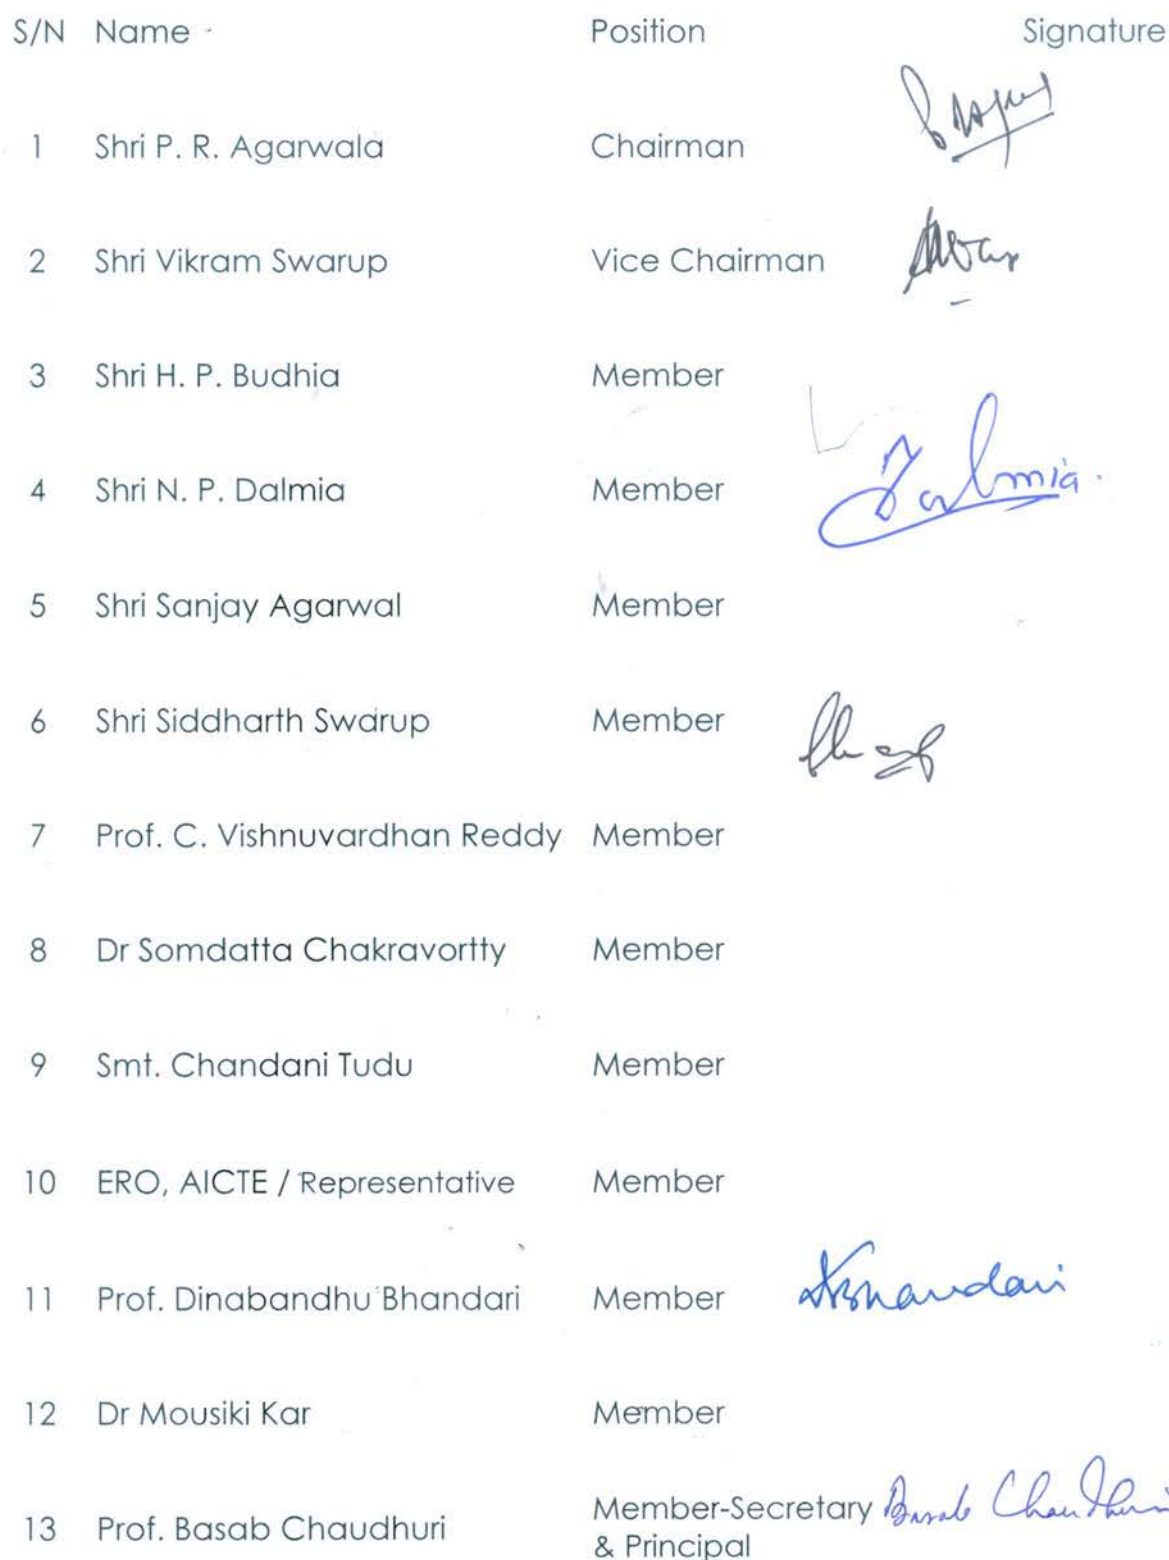 S/N Name Position Signature
1 Shri P. R. Agarwala Chairman
2 Shri Vikram Swarup Vice Chairman
3 Shri H. P. Budhia Member
4 Shri N. P. Dalmia Member Dalmia
5 Shri Sanjay Agarwal Member
6 Shri Siddharth Swarup Member
7 Prof. C. Vishnuvardhan Reddy Member
8 Dr Somdatta Chakravortty Member
9 Smt. Chandani Tudu Member
10 ERO, AICTE / Representative Member
11 Prof. Dinabandhu Bhandari Member DBhandari
12 Dr Mousiki Kar Member
13 Prof. Basab Chaudhuri Member-Secretary Basab Chaudhuri
& Principal